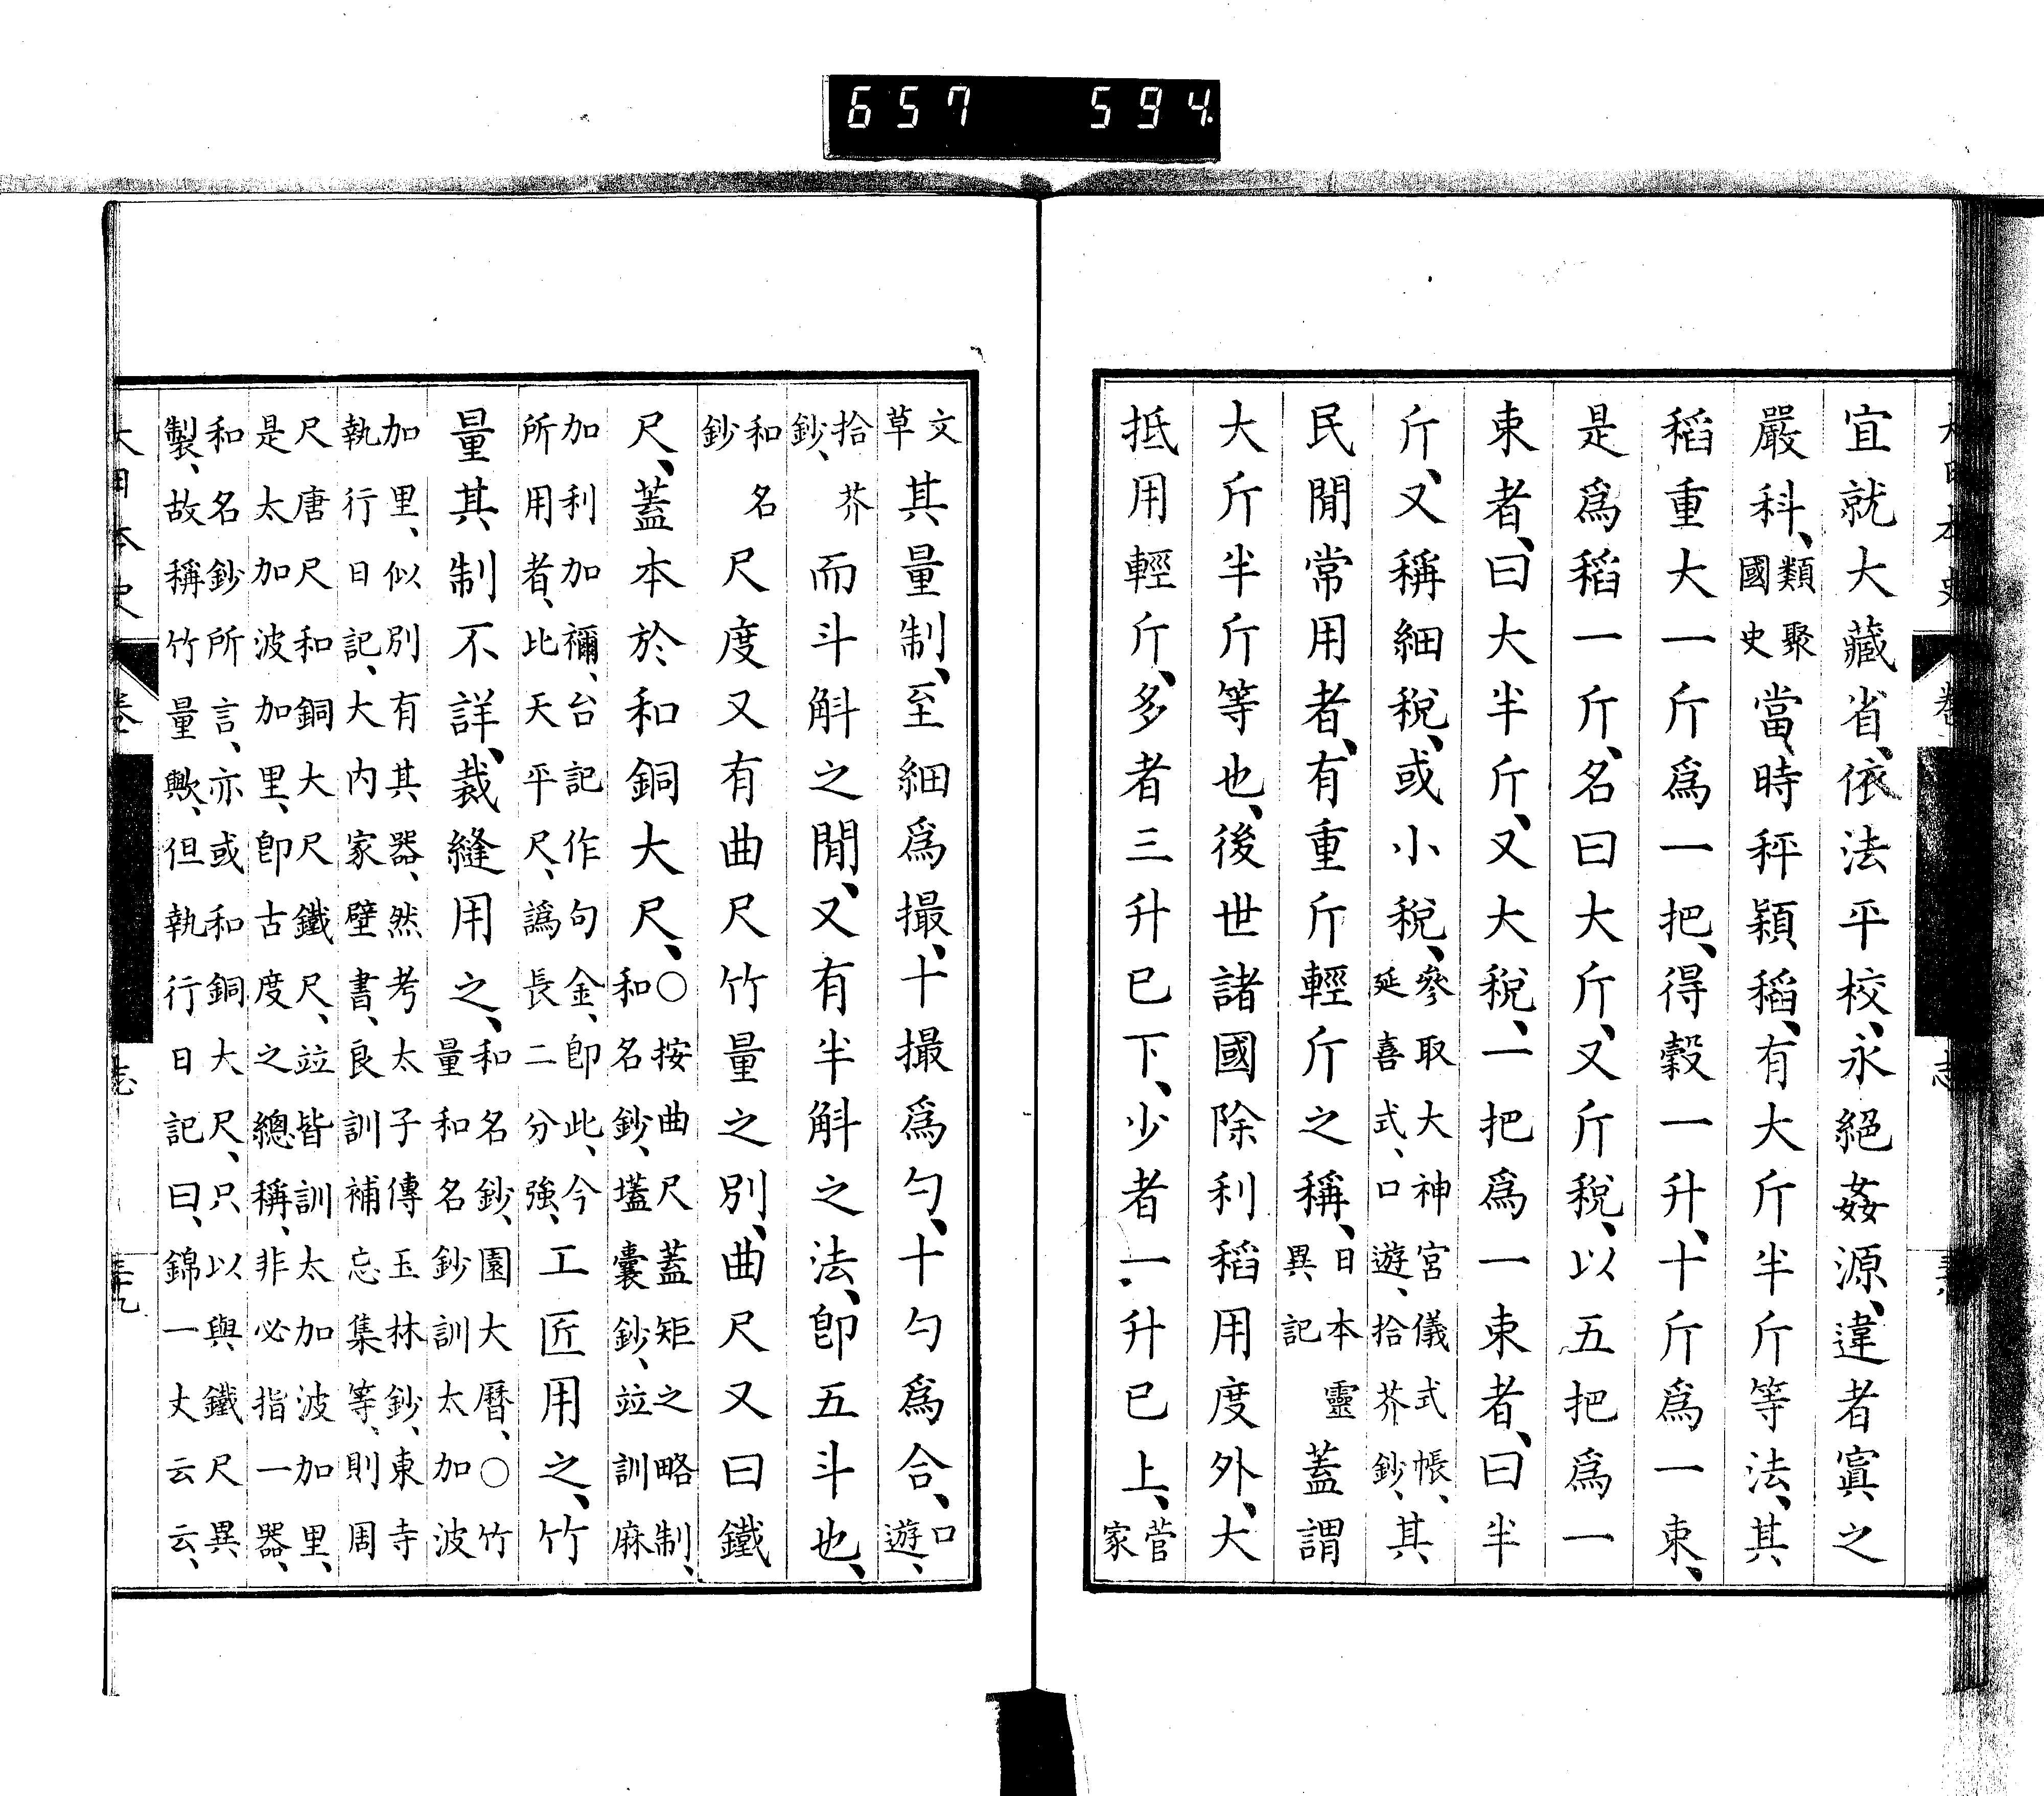 657 594
宜就大藏省、依法平校、永絕姦源、違者寘之
嚴科、類聚國史當時秤穎稻、有大斤半斤等法、其
稻重大一斤爲一把、得穀一升、十斤爲一束、
是爲稻一斤、名曰大斤、又斤稅、以五把爲一
束者、曰大半斤、又大稅、一把爲一束者、曰半
斤、又稱細稅、或小稅、參取大神宮儀式帳、延喜式、口遊、拾芥鈔、其
民閒常用者、有重斤輕斤之稱、日本靈異記蓋謂
大斤半斤等也、後世諸國除利稻用度外、大
抵用輕斤、多者三升已下、少者一升已上、菅家
文草其量制、至細爲撮、十撮爲勺、十勺爲合、口遊、
拾芥鈔、而斗斛之閒、又有半斛之法、卽五斗也、
和名鈔尺度又有曲尺竹量之別、曲尺又曰鐵
尺、蓋本於和銅大尺、○按曲尺蓋矩之略制、和名鈔、壒囊鈔、竝訓麻
加利加加禰、台記作句金、卽此、今所用者、比天平尺、譌長二分強、工匠用之、竹
量其制不詳、裁縫用之、和名鈔、園大曆、○竹量和名鈔訓太加波
加里、似別有其器、然考太子傳玉林鈔、東寺執行日記、大內家壁書、良訓補忘集等、則周
尺唐尺和銅大尺鐵尺、竝皆訓太加波加里、是太加波加里、卽古度之總稱、非必指一器、
和名鈔所言、亦或和銅大尺、只以與鐵尺異製、故稱竹量歟、但執行日記曰、錦一丈云云、
大日本史 卷 志